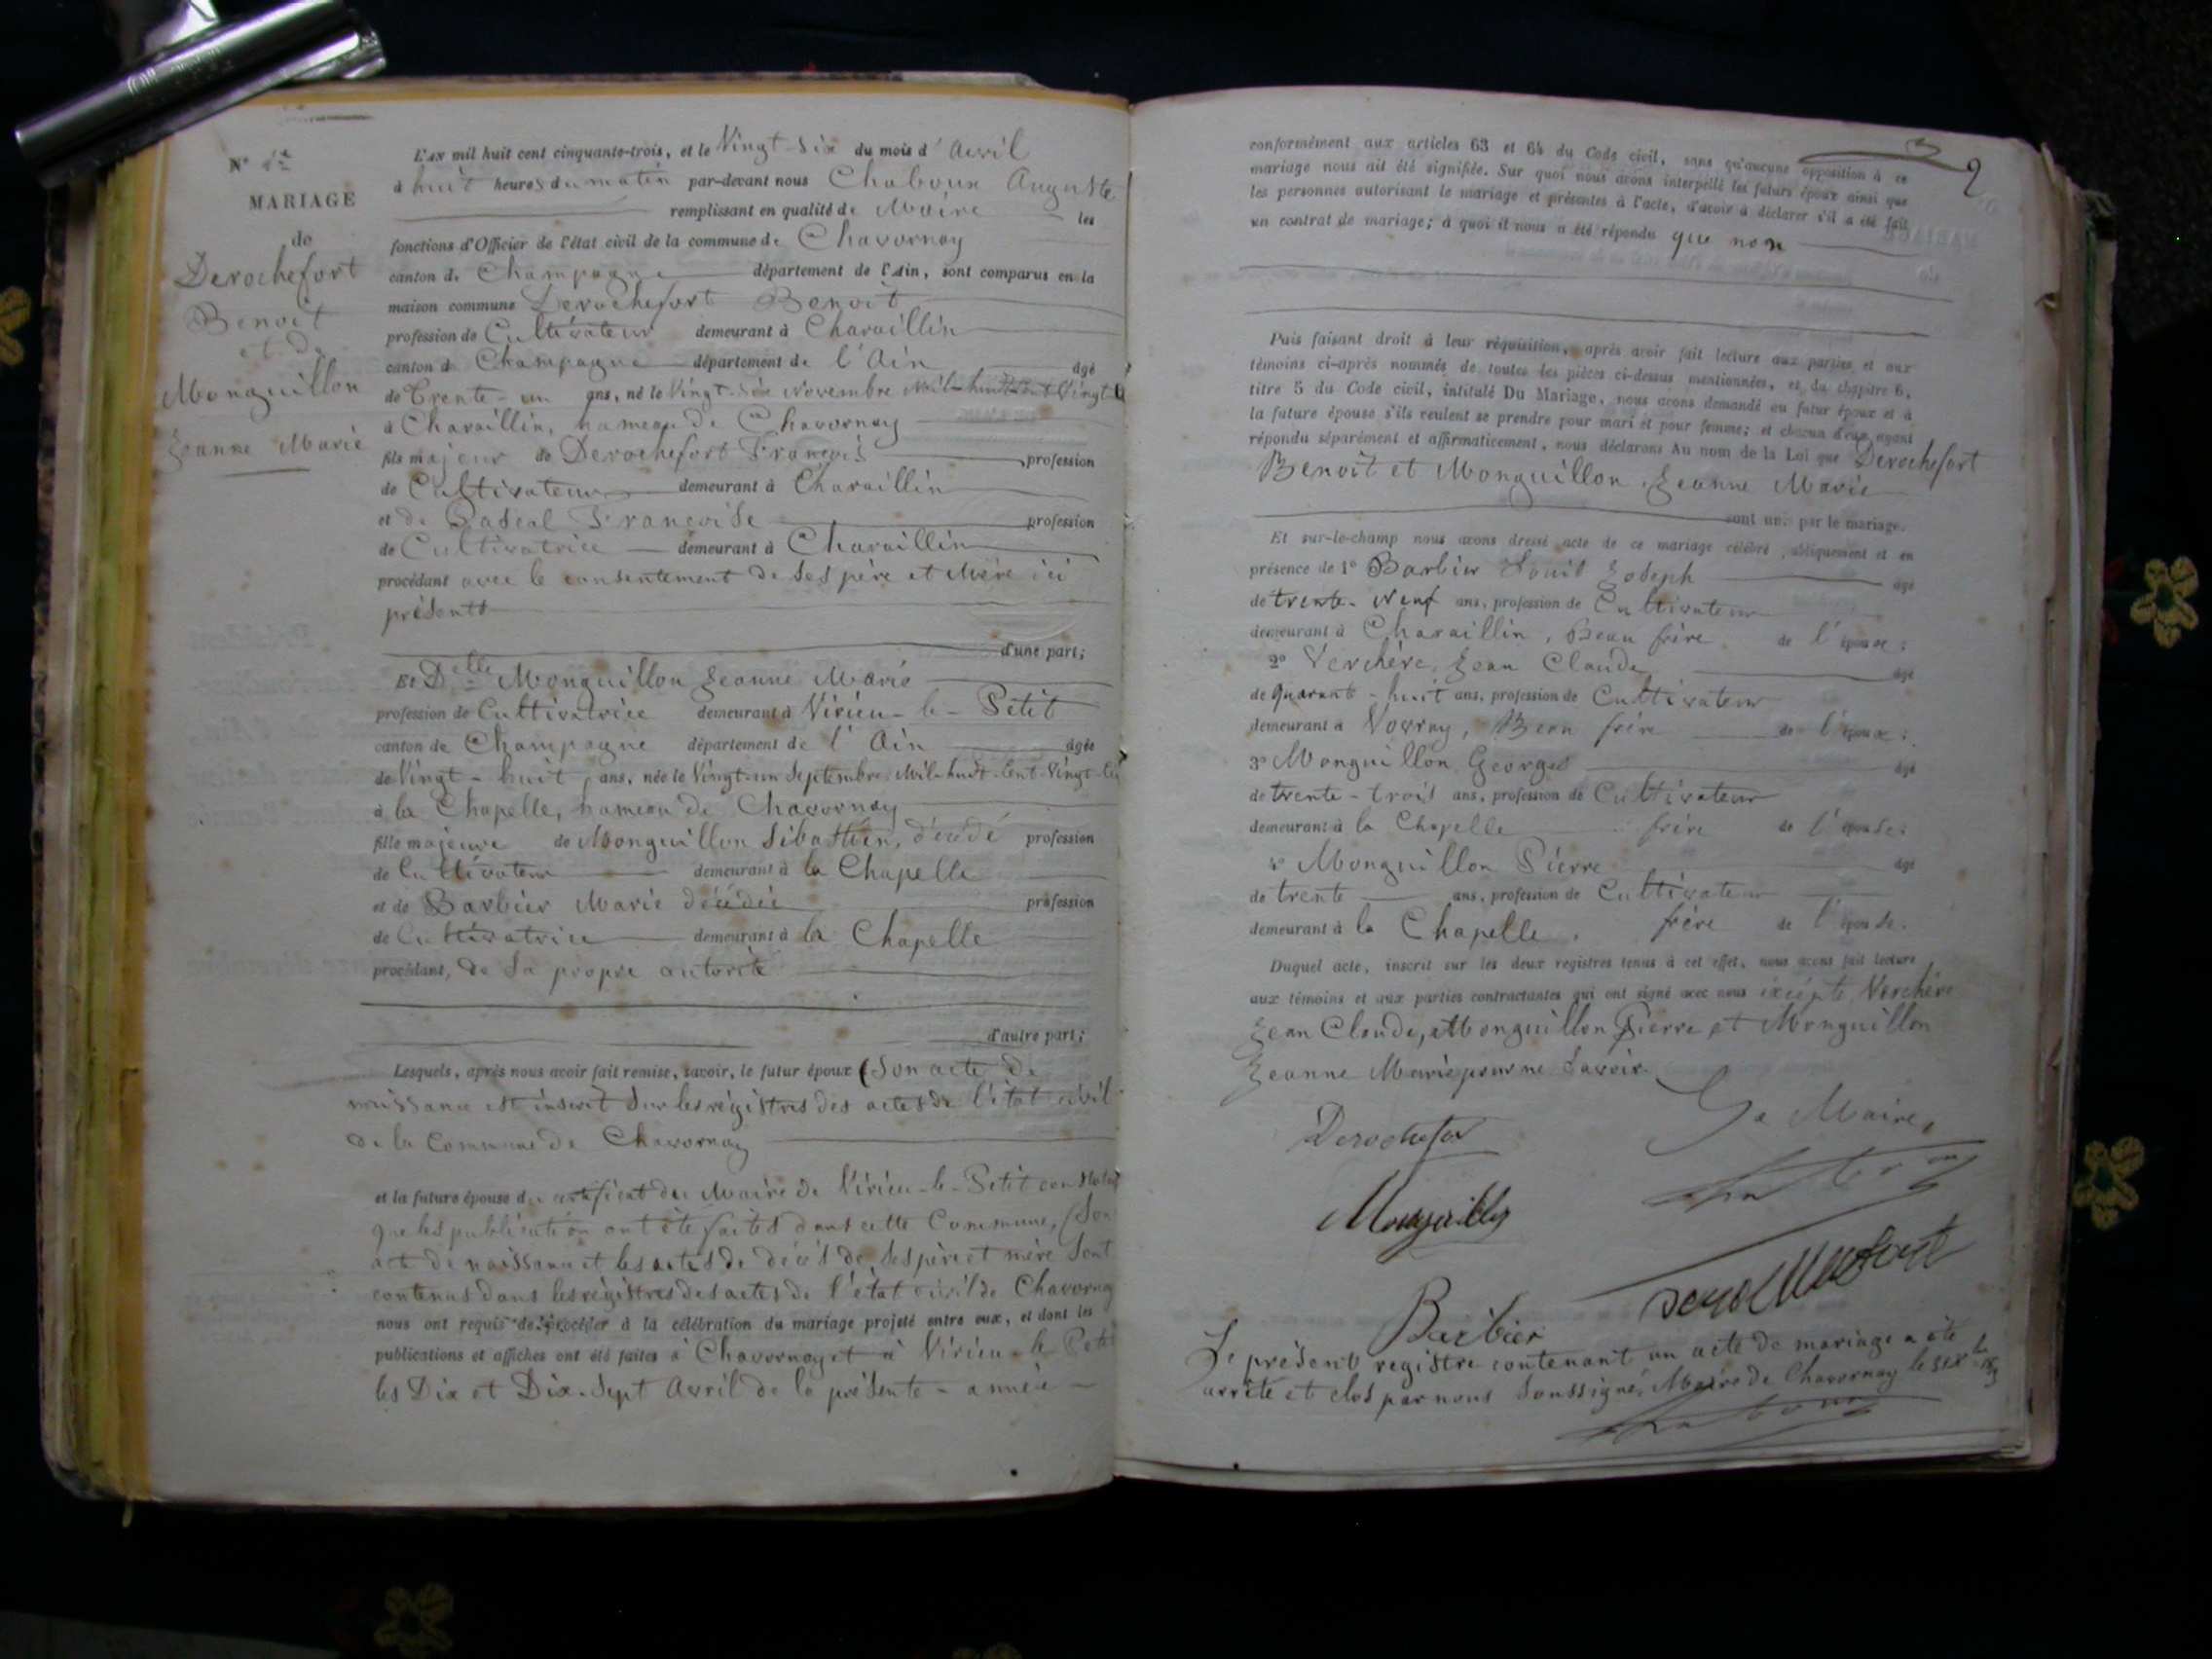 N°
MARIAGE
de
Derochefort
Benoit
et de
Monguillon
Jeanne Marie
L'an mil huit cent cinquante-trois, et le Vingt-Six du mois d'Avril
à huit heures du matin par-devant nous Chaboux Auguste
remplissant en qualité de Maire les
fonctions d'Officier de l'état civil de la commune de Chavornay
canton de Champagne département de l'Ain, sont comparus en la
maison commune Derochefort Benoit
profession de Cultivateur demeurant à Charaillin
canton de Champagne département de l'Ain âgé
de Trente-un ans, né le Vingt-Six Novembre Mil-huit-Cent Vingt
à Charaillin, hameau de Chavornay
fils majeur de Derochefort François profession
de Cultivateur demeurant à Charaillin
et de Pascal Françoise profession
de Cultivatrice demeurant à Charaillin
procédant avec le consentement de ses père et Mère ici
présents
d'une part;
Et Delle Monguillon Jeanne Marie
profession de Cultivatrice demeurant à Virieu-le-Petit
canton de Champagne département de l'Ain âgée
de Vingt-huit ans, née le Vingt-un Septembre Mil-huit-Cent-Vingt-
à la Chapelle, hameau de Chavornay
fille majeure de Monguillon Sibastien, décédé profession
de Cultivateur demeurant à la Chapelle
et de Barbier Marie décédée profession
de Cultivatrice demeurant à la Chapelle
procédant, de sa propre autorité
d'autre part;
Lesquels, après nous avoir fait remise, savoir, le futur époux (Son acte de
naissance est inscrit Sur les régistres des actes de l'état civil
de la Commune de Chavornay
et la future épouse du certificat du Maire de Virieu-le-Petit
que les publication ont été faites dans cette Commune, (Son
acte de naissance et les actes de décès de ses père et mère Sont
contenus dans les régistres des actes de l'état civil de Chavornay
nous ont requis de procéder à la célébration du mariage projeté entre eux, et dont les
publications et affiches ont été faites à Chavornay et à Virieu-le-Petit
les Dix et Dix-Sept Avril de la présente-année
2
conformément aux articles 63 et 64 du Code civil, sans qu'aucune opposition à ce
mariage nous ait été signifiée. Sur quoi nous avons interpellé les futurs époux ainsi que
les personnes autorisant le mariage et présentes à l'acte, d'avoir à déclarer s'il a été fait
un contrat de mariage; à quoi il nous a été répondu que non
Puis faisant droit à leur réquisition, après avoir fait lecture aux parties et aux
témoins ci-après nommés de toutes les pièces ci-dessus mentionnées, et du chapitre 6,
titre 5 du Code civil, intitulé Du Mariage, nous avons demandé au futur époux et à
la future épouse s'ils veulent se prendre pour mari et pour femme; et chacun d'eux ayant
répondu séparément et affirmativement, nous déclarons Au nom de la Loi que Derochefort
Benoit et Monguillon Jeanne Marie
sont unis par le mariage.
Et sur-le-champ nous avons dressé acte de ce mariage célébré publiquement et en
présence de 1° Barbier Louis Joseph âgé
de trente-Neuf ans, profession de Cultivateur
demeurant à Charaillin, Beau frère de l'épouse;
2° Verchère, Jean Claude âgé
de quarante-huit ans, profession de Cultivateur
demeurant à Vovray, Beau frère de l'époux;
3° Monguillon Georges âgé
de trente-trois ans, profession de Cultivateur
demeurant à la Chapelle frère de l'épouse;
4° Monguillon Pierre âgé
de trente ans, profession de Cultivateur
demeurant à la Chapelle, frère de l'épouse.
Duquel acte, inscrit sur les deux registres tenus à cet effet, nous avons fait lecture
aux témoins et aux parties contractantes qui ont signé avec nous excépté Verchère
Jean Claude, Monguillon Pierre et Monguillon
Jeanne Marie pour ne Savoir
Le Maire,
Derochefor
Monguillon
Barbier
Le présent registre contenant un acte de mariage a été
arrêté et clos par nous Soussigné, Maire de Chavornay le